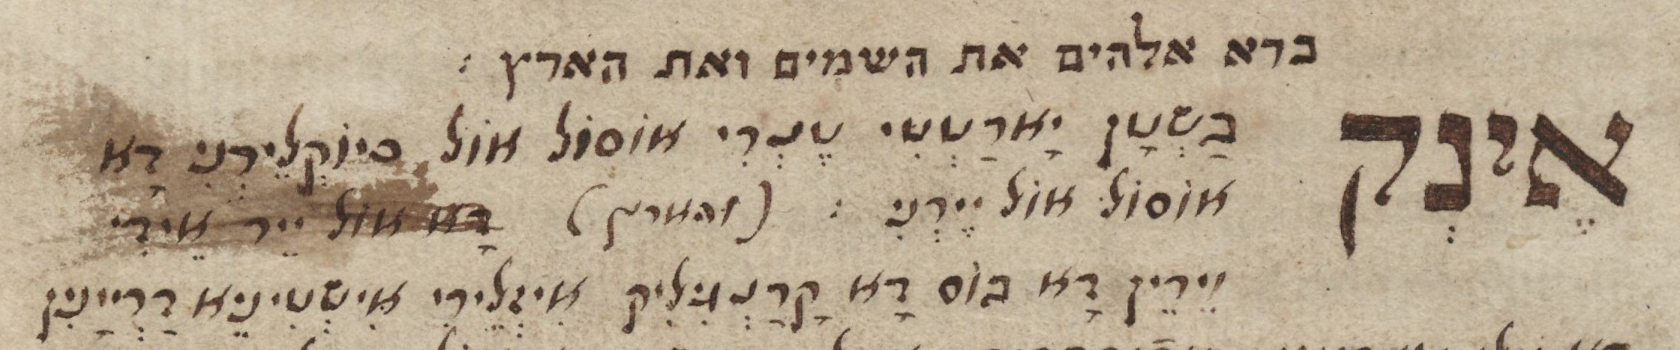 ברא אלהים את השמים ואת הארץ :
אֶינְק בַּשְׁטָן יָארַטְטִי טֶנְרִי אוֹסוֹל אוֹל כיוֹקְלֵירְנִי דָא
אוֹסוֹל אוֹל יֶירְנִי : (והארץ) דָא אוֹל יֵיר אֵידִי
וֵירֵין דָא בוֹס דָא קָרַנְגִילִיק אִיגְלֵירִי אִישְטִינֵיא דַרְיָינִין